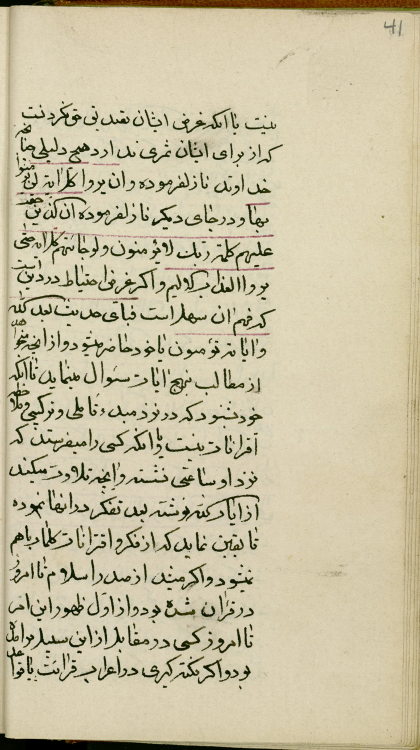 41
نیست یا آنکه غرض ایشان تصدیق حق کردنست
که از برای ایشان ثمری ندارد هیچ دلیلی چنانچه
خداوند نازل فرموده وان یروا کل آیة لن یؤمنوا
بها و در جای دیگر نازل فرموده ان الذین حقت
علیهم کلمة ربك لا یؤمنون ولو جائتهم کل آیة حتی
یروا العذاب الالیم و اگر غرض احتیاط در دین است
که فهم آن سهل است فبای حدیث بعد الله
و آیاته تؤمنون یا خود حاضر میشود و از آنچه میخواهد
از مطالب بنهج آیات سئوال مینماید تا آنکه
خود شنود که در نزد مبدء تاملی و ترکیبی و ملاحظه
اقترانات نیست و یا آنکه کسی را میفرستد که
نزد او ساعتی نشسته و آنچه تلاوت میکند
از آیات کتبه نوشته بعد تفکر در آنها نموده
تا یقین نماید که از فکر و اقترانات کلمات باهم
نمیشود و اگر میشد از صدر اسلام تا امروز
در قرآن شده بود و از اول ظهور این امر
تا امروز کسی در مقابل از این سبیل بر آمده
بود و اگر نکته گیری در اعراب قرائت یا قواعد